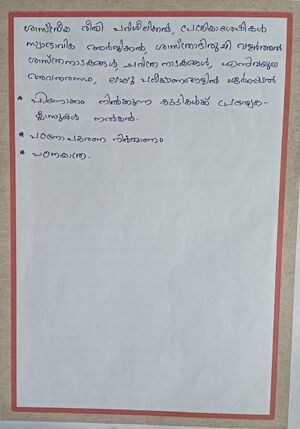 ശാസ്ത്രീയ രീതി പരിശീലിക്കൽ, പ്രക്രിയാശേഷികൾ
സ്വാഭാവിക ആർജ്ജിക്കൽ, ശാസ്ത്രാഭിരുചി വളർത്തൽ
ശാസ്ത്രനാടകങ്ങൾ, ചരിത്ര നാടകങ്ങൾ, എന്നിവയുടെ
അവതരണം, ലഘു പരീക്ഷണങ്ങളിൽ ഏർപ്പെടൽ
* പിന്നോക്കം നിൽക്കുന്ന കുട്ടികൾക്ക് പ്രത്യേക
ക്ലാസുകൾ നൽകൽ.
* പഠനോപകരണ നിർമ്മാണം
* പഠനയാത്ര.